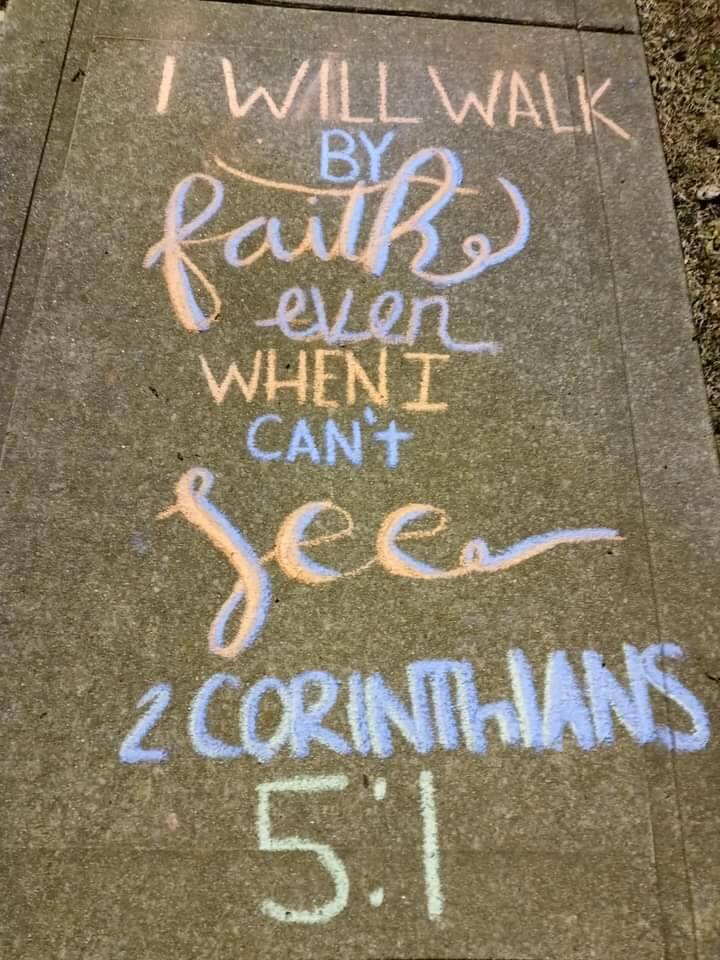 I WILL WALK
BY
faith
even
WHEN I
CAN't
See
2 CORINThIANS
5:1